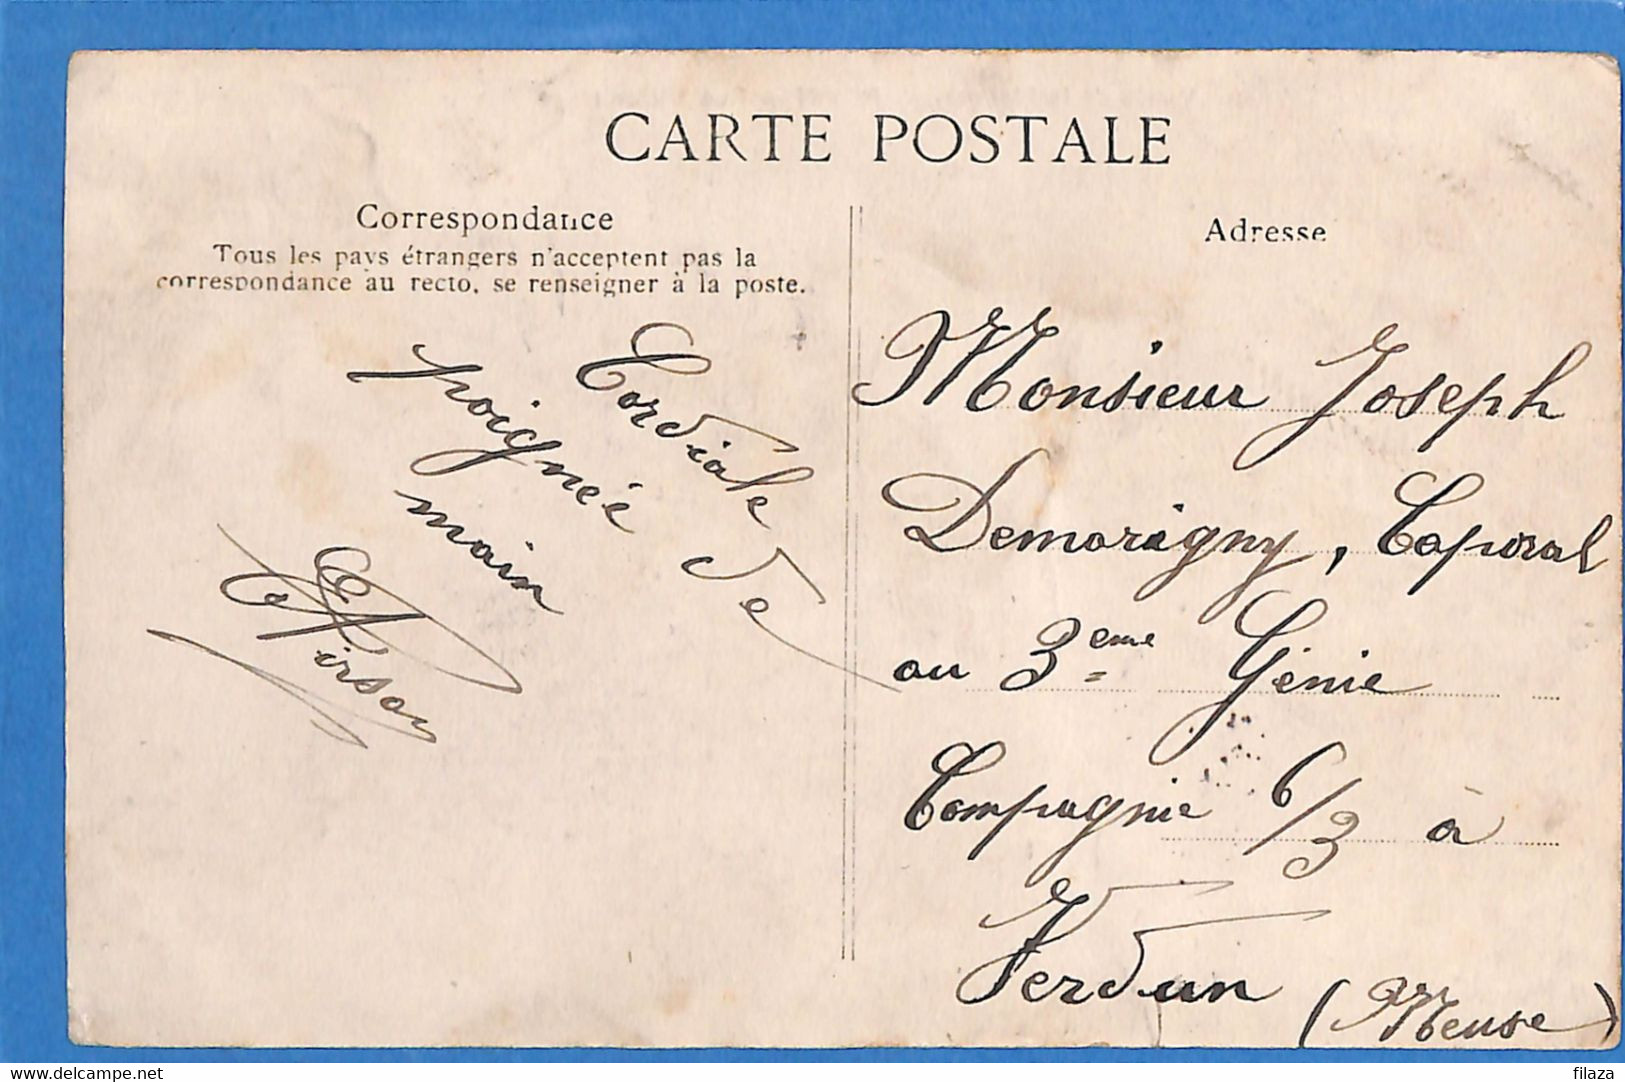 CARTE POSTALE
Correspondance
Tous les pays étrangers n'acceptent pas la
correspondance au recto, se renseigner à la poste.
Cordiale
poignée de
main
Adresse
Monsieur Joseph
Demorigny, Caporal
au 3eme Génie
Compagnie 6/3 à
Verdun (Meuse)
www.delcampe.net
filaza